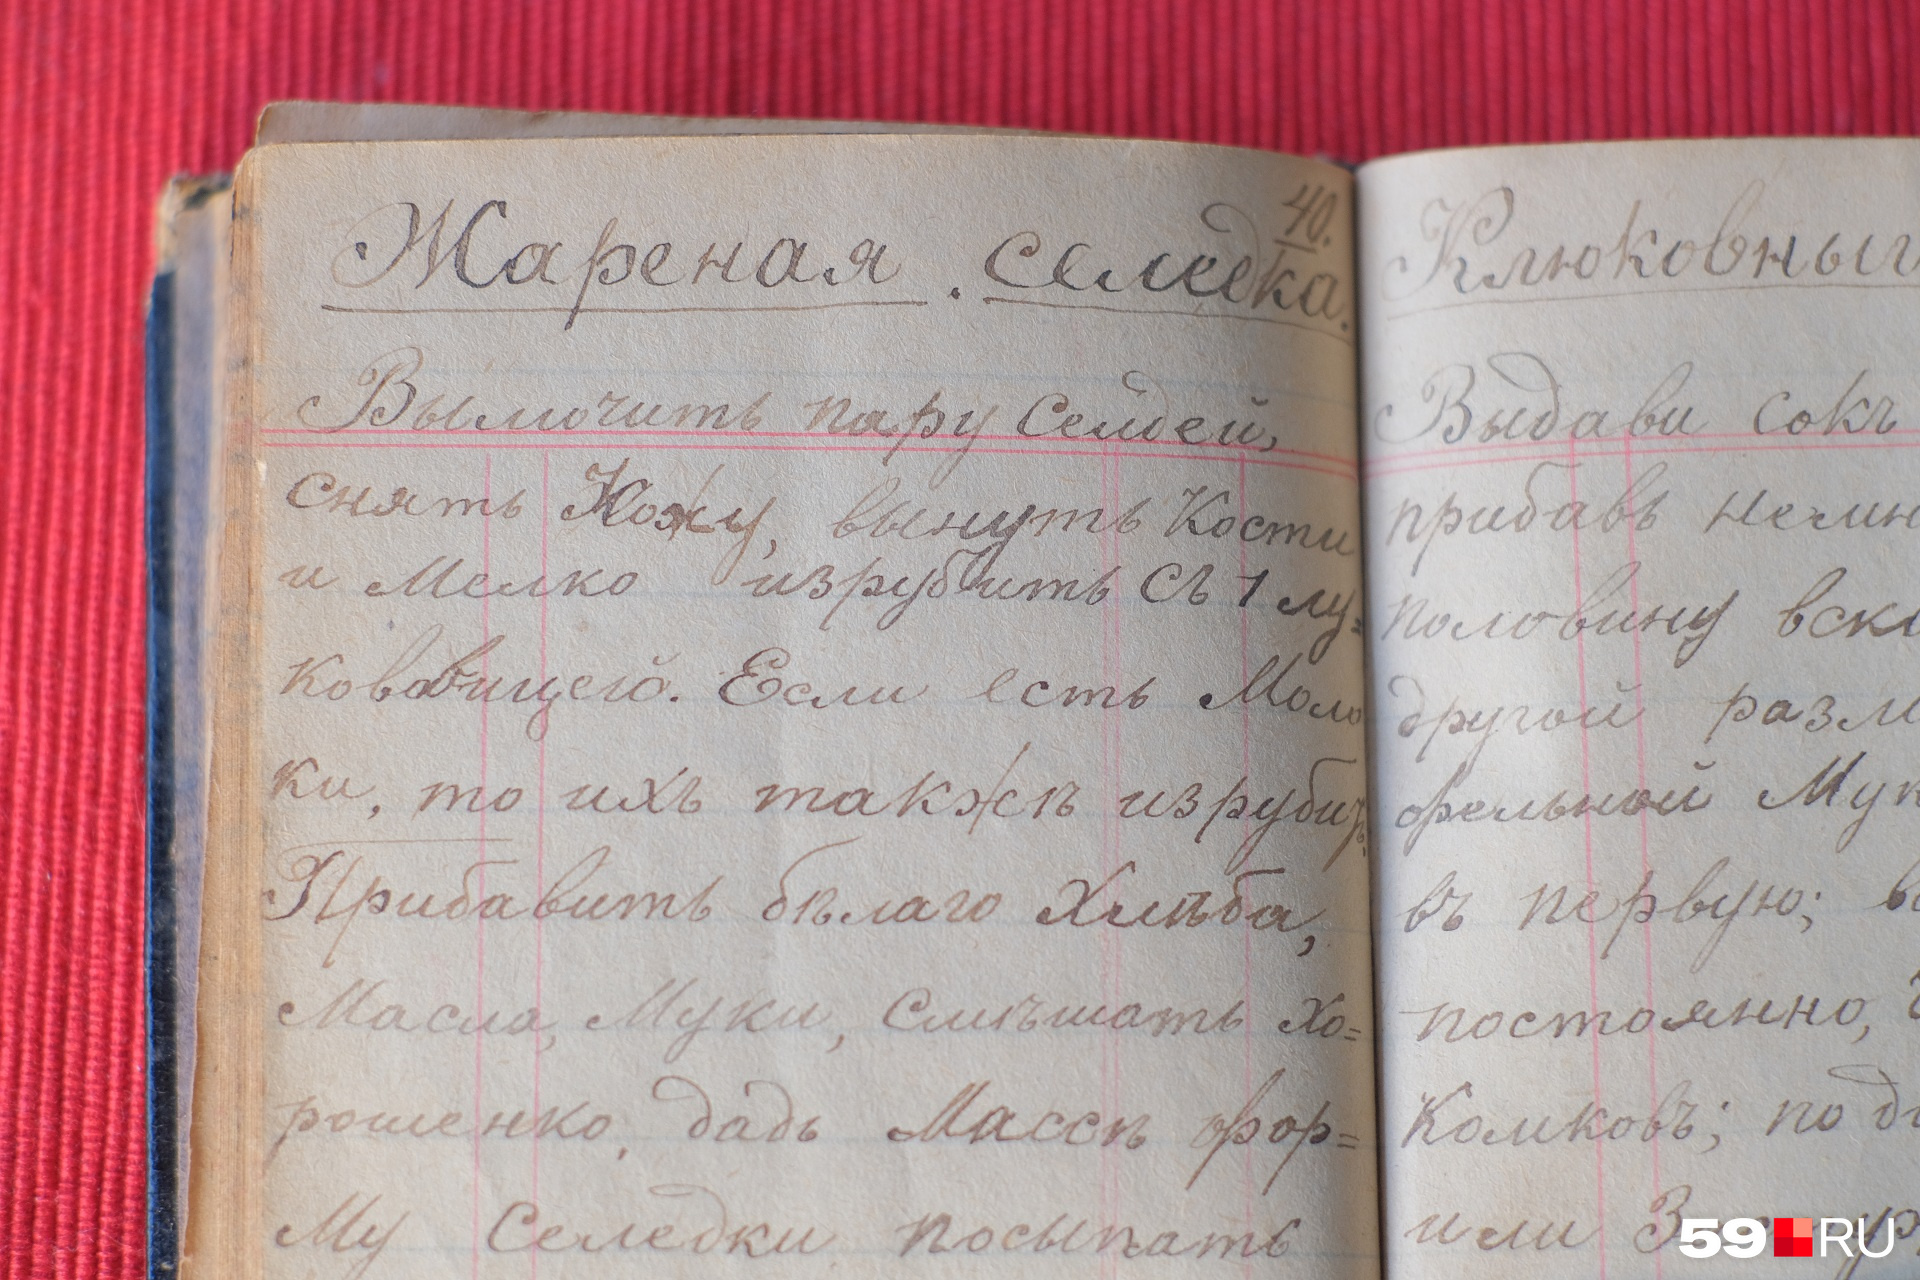 40.
Жареная. селедка.
Вымочить пару Селдей,
снять Кожу, вынуть Кости
и Мелко изрубить Съ 1 лу=
ковавицей. Если есть Моло
ки, то ихъ такжѣ изрубить.
Прибавить бѣлаго Хлѣба,
Масла, Муки, Смѣшать хо=
рошенко, дадь Массѣ фор=
Му Селедки посыпать
Клюковный
Выдави сокъ
прибавь
половину
другой
офельной
въ первую;
постоянно,
Комковъ; по
или
59.RU